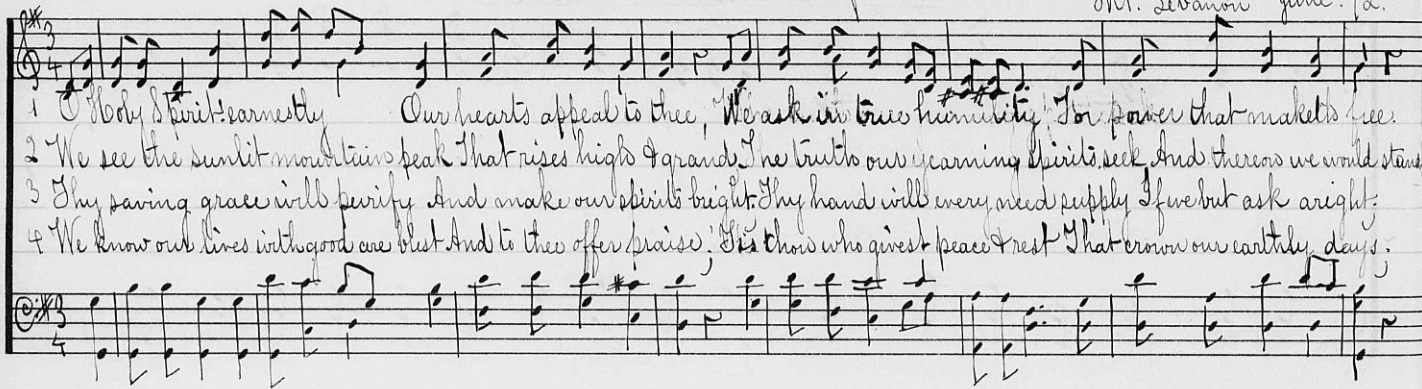 Mt. Lebanon June.
1 O Holy Spirit earnestly Our hearts appeal to thee, We ask in true humility For power that maketh free.
2 We see the sunlit mountain peak That rises high & grand. The truth our yearning spirits seek And thereon we would stand
3 Thy saving grace will purify And make our spirits bright. Thy hand will every need supply If we but ask aright.
4 We know our lives with good are blest And to thee offer praise; Tis thou who givest peace & rest That crown our earthly days;